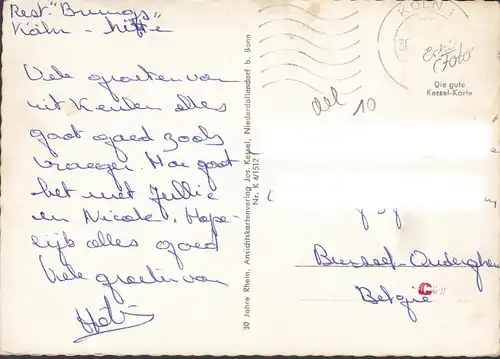 Rest. "Brungs"
Köln - Mitte
Vele groeten van
uit Keulen alles
gaat goed zoals
vroeger. Hoe gaat
het met Jullie
en Nicole. Hope-
lijk alles goed
Vele groeten van
30 Jahre Rhein. Ansichtskartenverlag Jos. Kessel, Niederdollendorf b. Bonn
Nr. K 4/1512
KÖLN
30
Echt
Foto
Die gute
Kessel-Karte
10
Brussel-Ouderghem
België